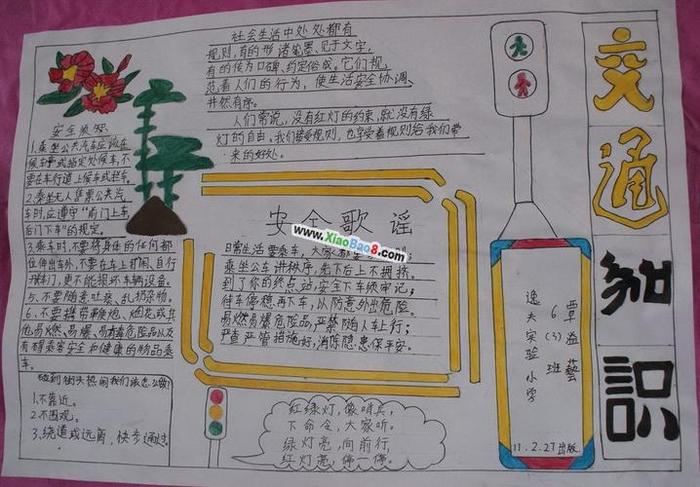 交通知识
社会生活中处处都有
规则,有的形诸笔墨、见于文字,
有的传为口碑、约定俗成,它们规
范着人们的行为,使生活安全协调、
井然有序。
人们常说,没有红灯的约束,就没有绿
灯的自由。我们接受规则,也享受着规则给我们带
来的好处。
安全
1.乘坐公共汽车应该在
候车亭或指定处候车,不
要在车行道上候车或拦车。
2.乘坐无人售票公共汽
车时,应遵守“前门上车
后门下车”的规定。
3.乘车时,不要将身体的任何部
位伸出车外,不要在车上打闹、自行
车门,更不能损坏车辆设备。
5、不要随意吐痰、乱扔杂物。
6、不要携带鞭炮、烟花或其
他易燃、易爆、易有毒危险品以及
有碍乘客安全和健康的物品乘
车。
碰到街头热闹我们该怎么做?
1.不靠近。
2.不围观。
3.绕道或远离,快步通过。
安全歌谣
www.XiaoBao8.com
日常生活要乘车,大家都
乘坐公车讲秩序,先下后上不拥挤。
到了你的终点站,安全下车须牢记;
待车停稳再下车,以防意外出危险。
易燃易爆危险品,严禁随人车上行;
严查严管措施好,消除隐患保平安。
红绿灯,像哨兵,
下命令,大家听。
绿灯亮,向前行,
红灯亮,停一停。
覃益藝
6(3)班
逸夫实验小学
11.2.27出版